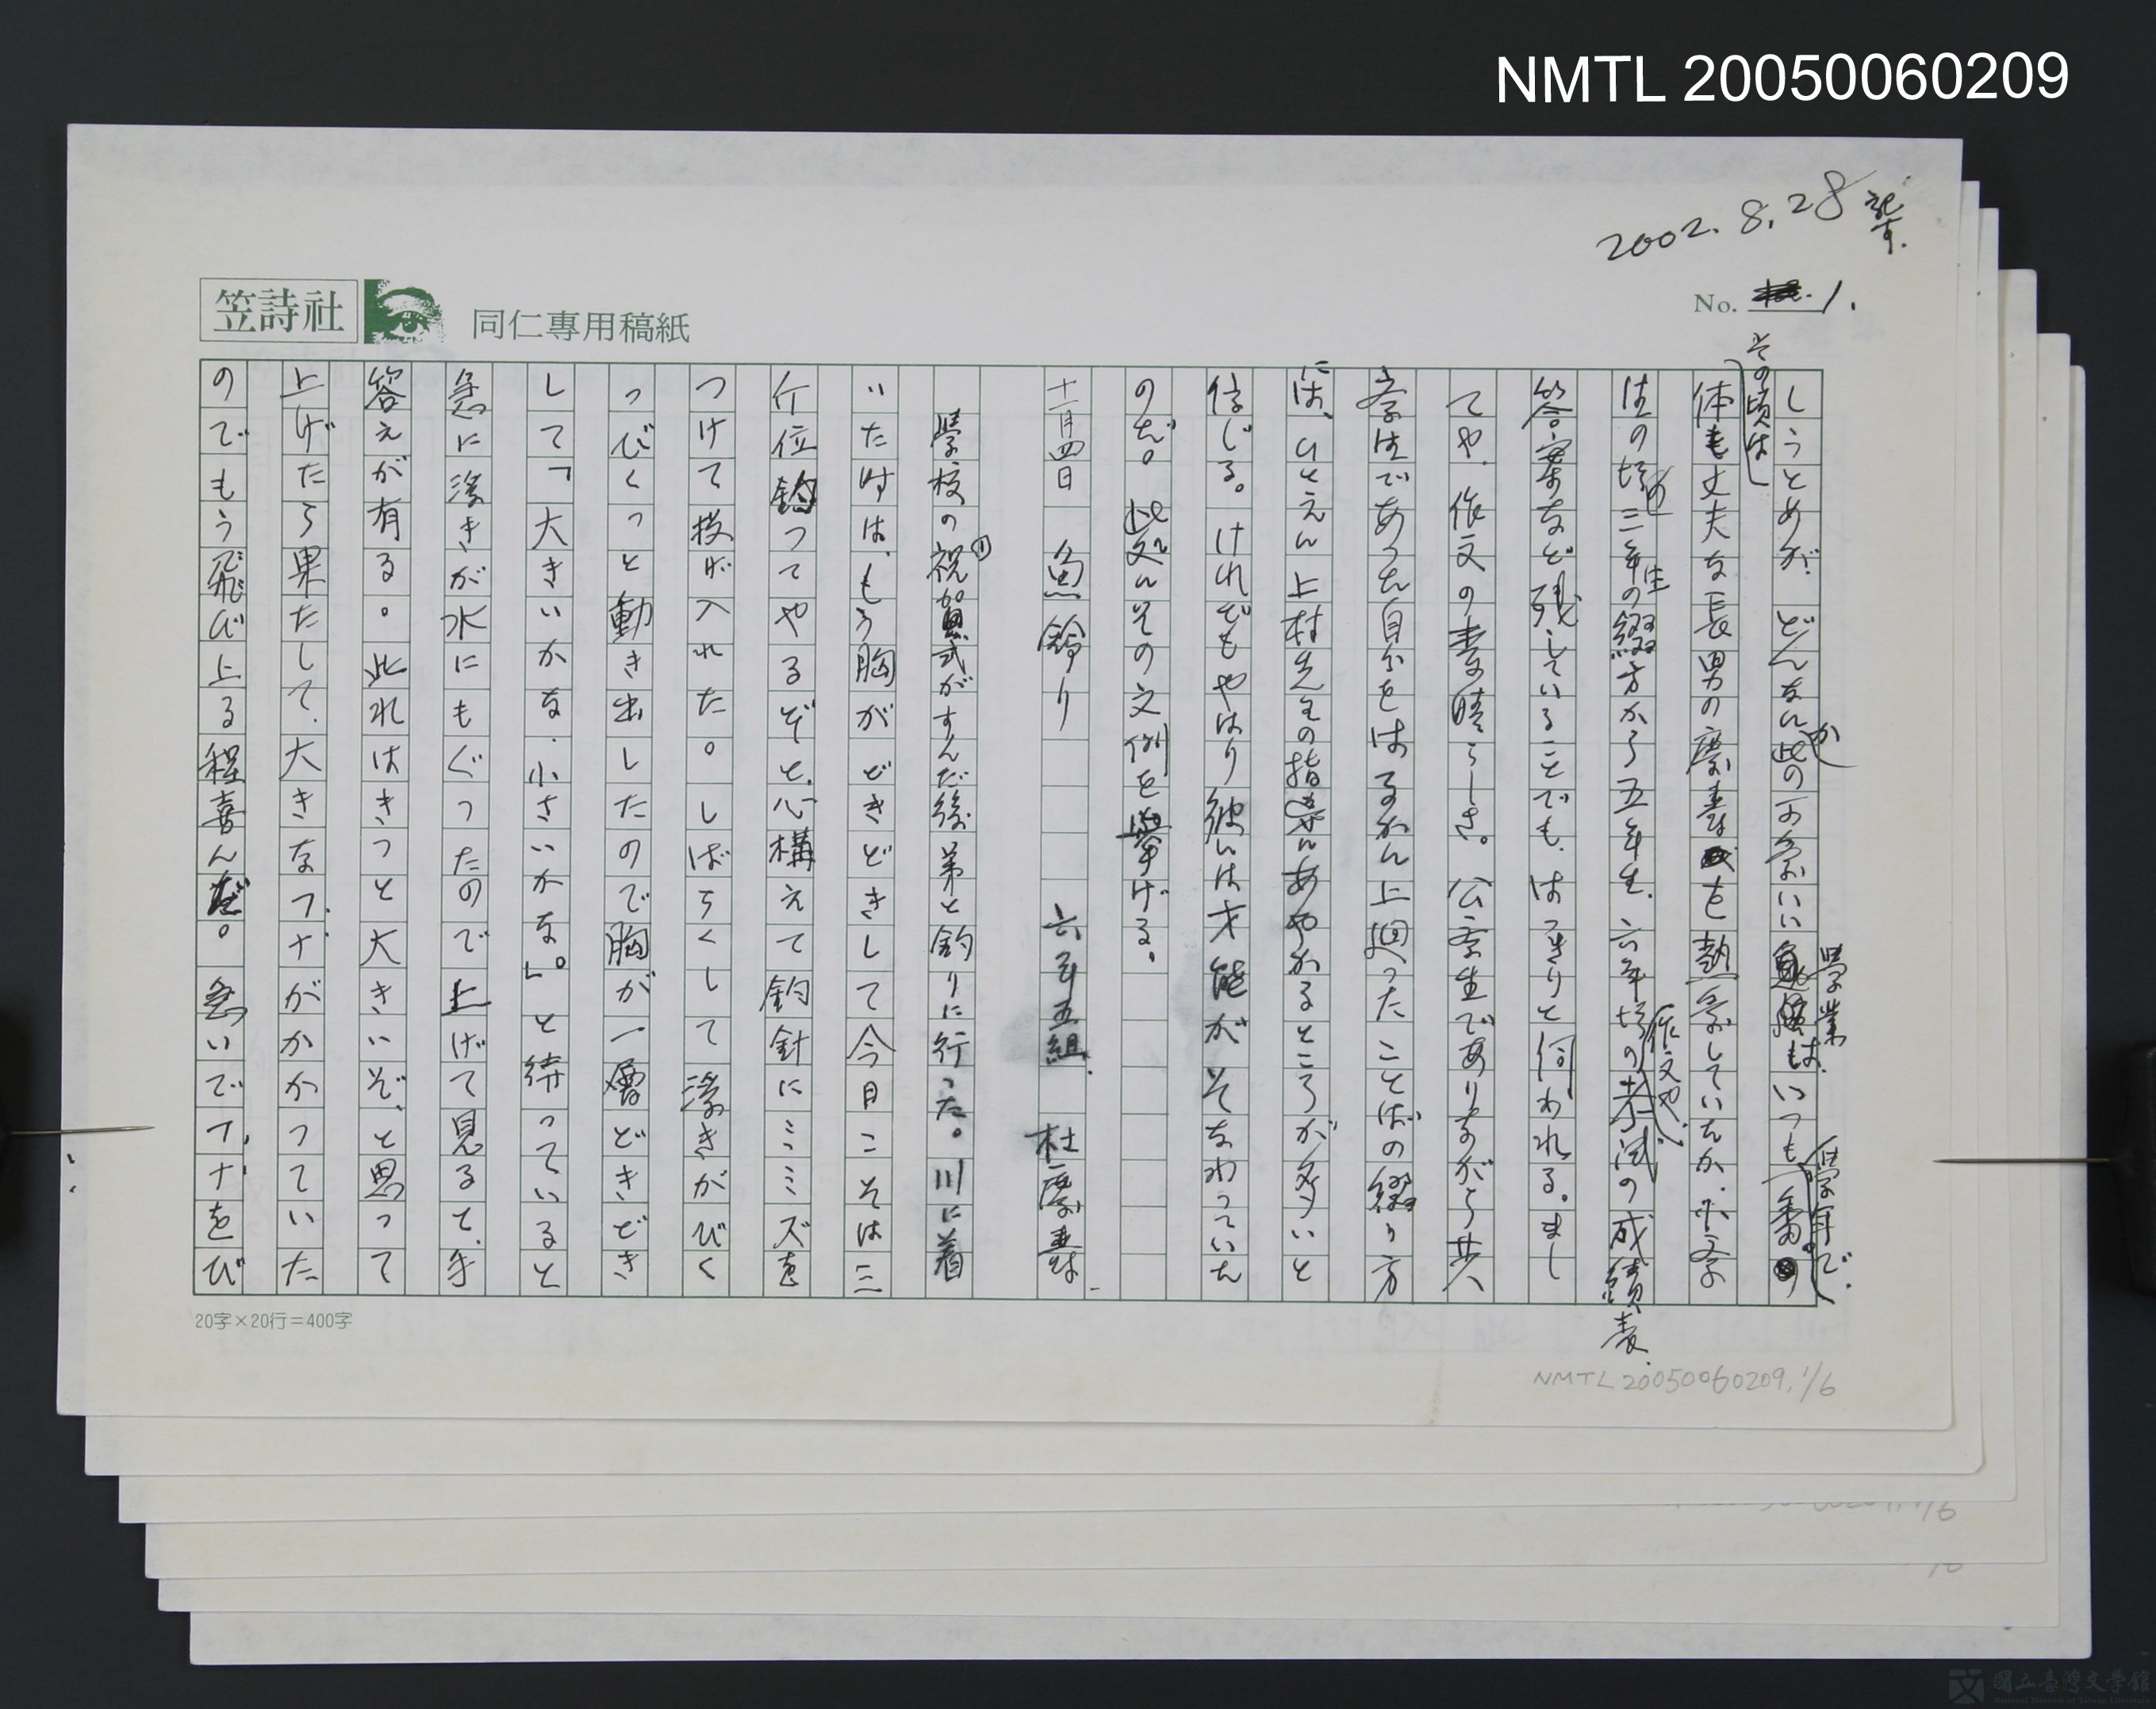 NMTL 20050060209
2002. 8. 28
No. 1.
笠詩社
同仁專用稿紙
その頃は
しうとめが、どんなに
學業は、いつも一番。學年で、
体も丈夫な長男の慶壽を熱愛していたが、小学
生の頃の三年生の綴方から五年生、六年頃の作文や、考試の成績表、
答案など残していることでも、はっきりと伺われる。まし
てや、作文の素晴らしさ。公学生でありながら共
学生であった自分をはるかに上廻ったことばの綴り方
には、ひとえに上村先生の指導にあやかるところが多いと
信じる。けれどもやはり彼には才能がそなわっていた
のだ。此処にその文例を擧げる。
十一月四日 魚釣り 六年五組. 杜慶壽.
學校の祝賀式がすんだ後弟と釣りに行った。川に着
いた時は、もう胸がどきどきして今日こそは三
斤位釣ってやるぞと、心構えて釣針にミミズを
つけて投げ入れた。しばらくして浮きがびく
っびくっと動き出したので胸が一層どきどき
して「大きいかな、小さいかな」。と待っていると
急に浮きが水にもぐったので上げて見ると、手
答えが有る。此れはきっと大きいぞ、と思って
上げたら果たして、大きなフナがかかっていた
のでもう飛び上る程喜んだ。急いでフナをび
20字×20行＝400字
NMTL 20050060209, 1/6
國立臺灣文學館
National Museum of Taiwan Literature